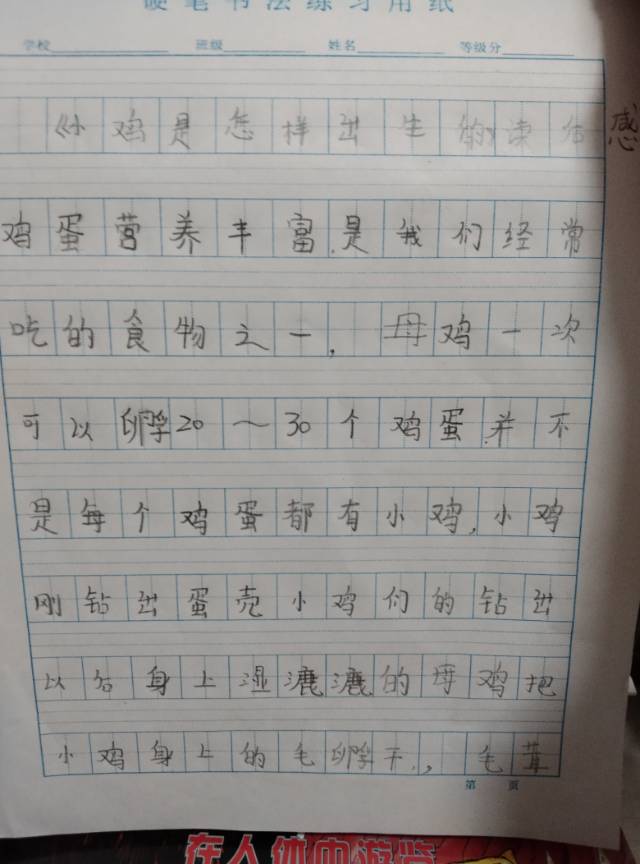 硬笔书法练习用纸
学校 班级 姓名 等级分
《小鸡是怎样出生的读后
感
鸡蛋营养丰富.是我们经常
吃的食物之一，母鸡一次
可以孵20～30个鸡蛋.并不
是每个鸡蛋都有小鸡，小鸡
刚钻出蛋壳小鸡们的钻出
以后身上湿漉漉的母鸡把
小鸡身上的毛孵干，，毛茸
第 页
在人体内游览